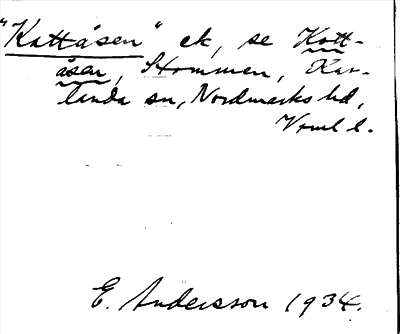 "Kattåsen" ek, se Katt-
åsen, Stommen, Kar-
landa sn, Nordmarks hd,
Vrml l.
E. Andersson 1934.